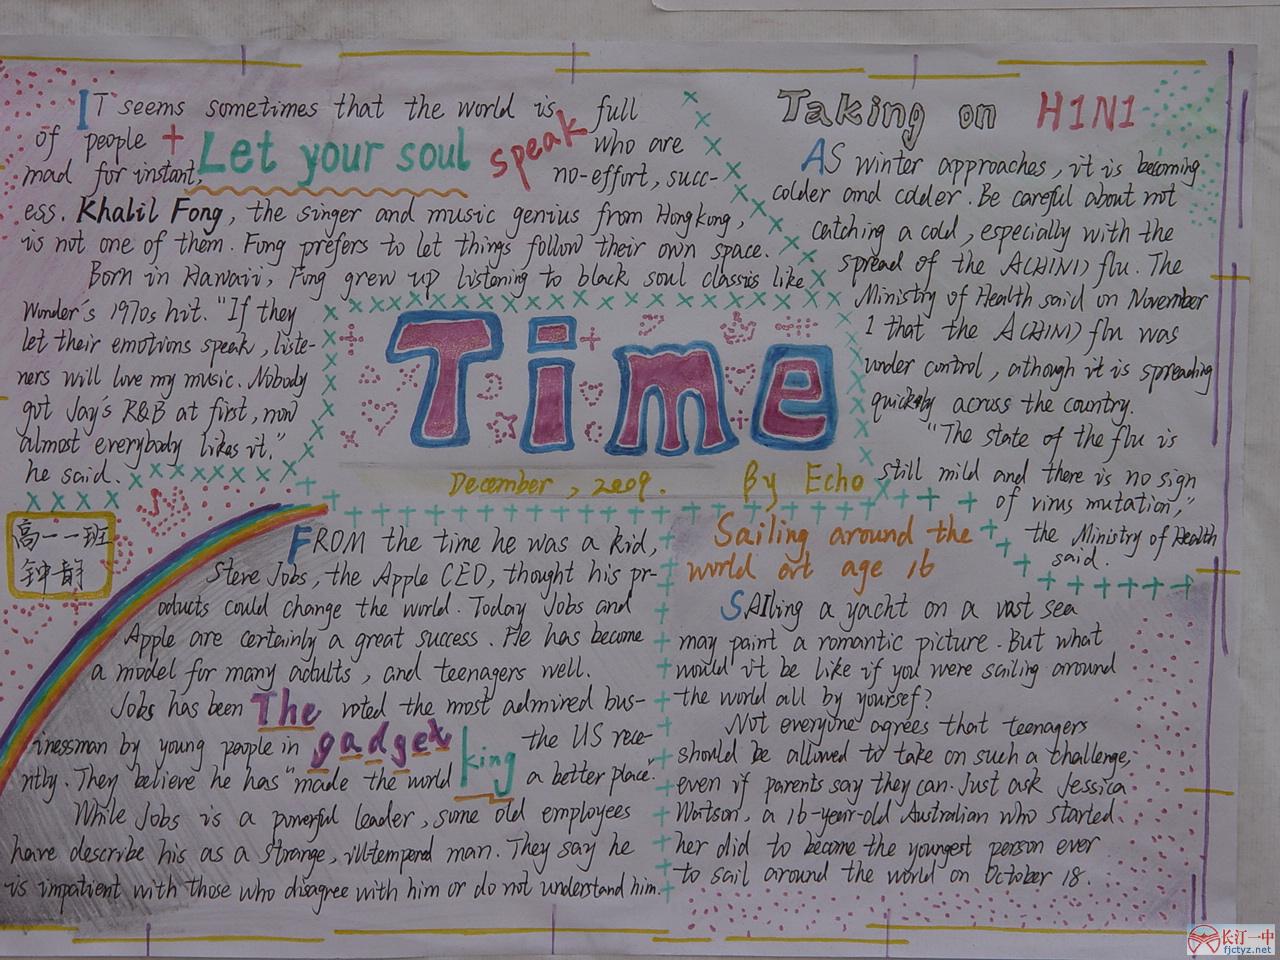 IT seems sometimes that the world is full
of people + Let your soul speak who are
mad for instant, no-effort, succ-
ess. Khalil Fong, the singer and music genius from Hongkong,
is not one of them. Fong prefers to let things follow their own space.
Born in Hawaii, Fong grew up listening to black soul classics like
Wonder's 1970s hit. "If they
let their emotions speak, liste-
ners will love my music. Nobody
got Jay's R&B at first, now
almost everybody likes it."
he said.
Taking on H1N1
AS winter approaches, it is becoming
colder and colder. Be careful about not
catching a cold, especially with the
spread of the A(H1N1) flu. The
Ministry of Health said on November
1 that the A(H1N1) flu was
under control, athough it is spreading
quickly across the country.
"The state of the flu is
still mild and there is no sign
of virus mutation,"
the Ministry of Health
said.
Time
December, 2009. By Echo
高一一班
钟静
FROM the time he was a kid,
Steve Jobs, the Apple CEO, thought his pr-
oducts could change the world. Today Jobs and
Apple are certainly a great success. He has become
a model for many adults, and teenagers well.
Jobs has been The voted the most admired bus-
inessman by young people in gadget the US rece-
ntly. They believe he has "made the world king a better place."
While Jobs is a powerful leader, some old employees
have describe his as a strange, ill-tempered man. They say he
is impatient with those who disagree with him or do not understand him.
Sailing around the
world at age 16
SAIling a yacht on a vast sea
may paint a romantic picture. But what
would it be like if you were sailing around
the world all by yoursef?
Not everyone agrees that teenagers
should be allowed to take on such a challenge,
even if parents say they can. Just ask Jessica
Watson, a 16-year-old Australian who started
her did to become the youngest person ever
to sail around the world on October 18.
长汀一中
fjctyz.net